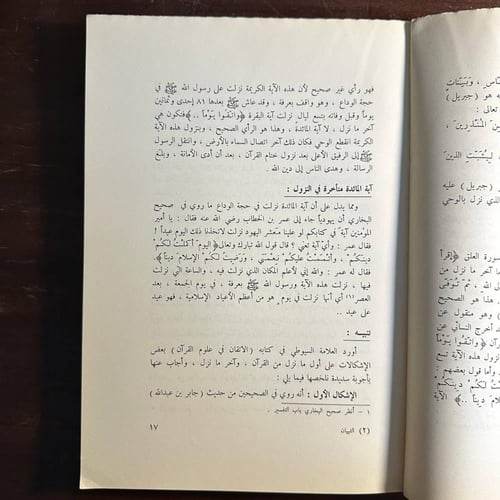 فهو رأي غير صحيح لأن هذه الآية الكريمة نزلت على رسول الله ﷺ في
حجة الوداع ، وهو واقف بعرفة ، وقد عاش ﷺ بعدها ٨١ إحدى وثمانين
يوماً وقبل وفاته بتسع ليال نزلت آية البقرة ﴿واتقوا يوماً ..﴾ فتكون هي
آخر ما نزل ، لا آية المائدة ، وهذا هو الرأي الصحيح ، وبنزول هذه الآية
الكريمة انقطع الوحي فكان ذلك آخر اتصال السماء بالأرض ، وانتقل رسول
الله ﷺ إلى الرفيق الأعلى بعد نزول ختام القرآن ، بعد أن أدى الأمانة ، وبلغ
الرسالة ، وهدى الناس إلى دين الله .
آية المائدة متأخرة في النزول :
ومما يدل على أن آية المائدة نزلت في حجة الوداع ما روي في صحيح
البخاري أن يهودياً جاء إلى عمر بن الخطاب رضي الله عنه فقال : يا أمير
المؤمنين آية في كتابكم لو علينا معشر اليهود نزلت لاتخذنا ذلك اليوم عيداً !
فقال عمر : وأي آية تعني ؟ قال قول الله تبارك وتعالى ﴿اليوم أكملت لكم
دينكم ، وأتممت عليكم نعمتي ، ورضيت لكم الإسلام ديناً﴾ .
فقال له عمر : والله إني لأعلم المكان الذي نزلت فيه ، والساعة التي نزلت
فيها ، نزلت هذه الآية ورسول الله ﷺ بعرفة ، في يوم الجمعة ، بعد
العصر (١) أي أنها نزلت في يوم هو من أعظم الأعياد الإسلامية ، فهو عيد
على عيد ..
تنبيه :
أورد العلامة السيوطي في كتابه (الاتقان في علوم القرآن) بعض
الإشكالات على أول ما نزل من القرآن ، وآخر ما نزل ، وأجاب عنها
بأجوبة سديدة نلخصها فيما يلي :
الإشكال الأول : أنه روي في الصحيحين من حديث (جابر بن عبدالله)
١ - أنظر صحيح البخاري باب التفسير .
(٢) التبيان
١٧
ناس ، وبينات
ه هو (جبريل)
تعالى :
المنذرين ،
ليثبت الذين
(جبريل) عليه
الذي نزل بالوحي
سورة العلق ﴿إقرأ
وآخر ما نزل من
، ثم توفى
هذا هو الصحيح
أخرج النسائي عن
﴿واتقوا يوماً
نزول هذه الآية تسع
وأما قول بعضهم :
لكم دينكم
ديناً ..﴾ الآية